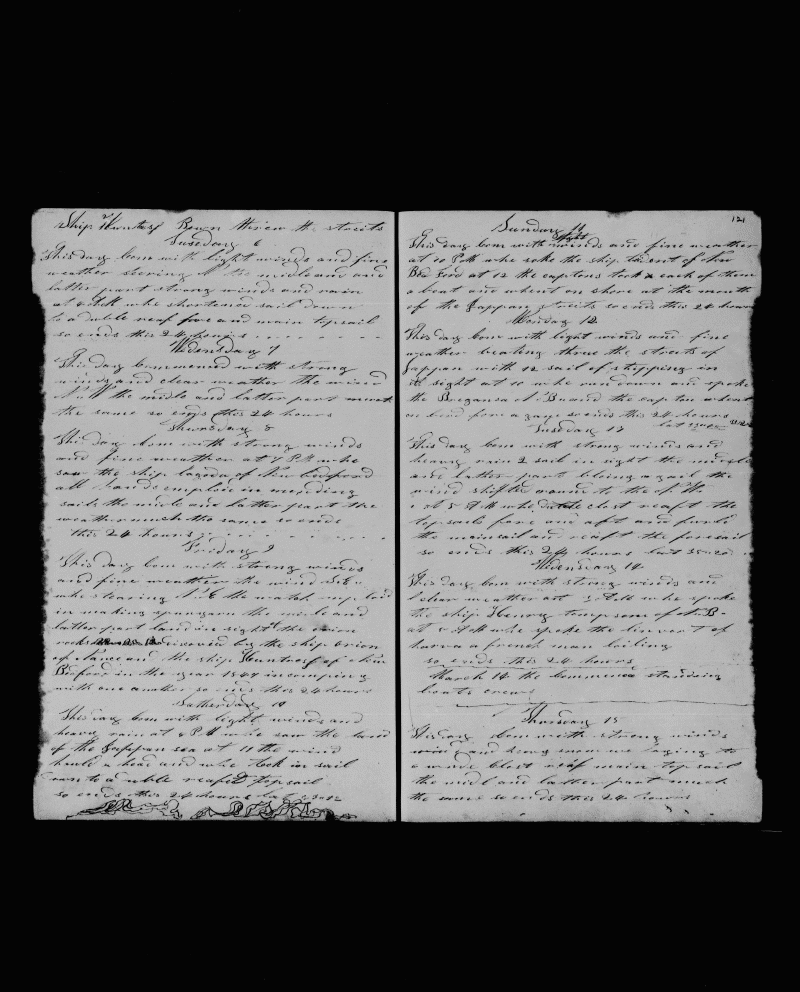 Ship Huntress Bown threw the streits
Tusedary 6
This day bom with light winds and fine
weather steering N the midle and and
latter part strong winds and rain
at 4 PM whe shortened sail down
to a duble reaf fore and main topsail
so ends this 24 hours
Wedensday 7
This day Commenced with strong
winds and clear weather the wind
the midle and latter part much
the same so ends this 24 hours
Thursday 8
This day bom with strong winds
and fine weather at 7 PM whe
saw the ship lagoda of New bedford
all hands emploid in mending
sails the midle and latter part the
weather much the same so ends
this 24 hours
Friday 9
This day bom with strong winds
and fine weather the wind
whe stearing N E the watch
in making spunyarn the midle and
latter part land in sight the orion
rocks discoverd by the ship orion
of and the ship Huntress of New
Bedford in the year 1847 in company
with one another so ends this 24 hours
Satherday 10
This day bom with light winds and
heavy rain at 4 PM whe saw the land
of the Jappan sea at 11 the wind
hauld a head and whe took in sail
down to a duble reafed topsail
so ends this 24 hours lat
121
Sunday 11
This day bom with light winds and fine weather
at 10 PM whe spoke the ship trident of New
Bed Ford at 12 the captens took each of them
a boat and whent on shore at the mouth
of the Jappan streits so ends this 24 hours
Monday 12
This day bom with light winds and fine
weather beating threw the streits of
Jappan with 12 sail of shipping in
sight at 10 whe run down and spoke
the Braganza of N B and the capten whent
on bord for a gam so ends this 24 hours
lat
Tuseday 13
This day bom with strong winds and
heavy rain 2 sail in sight the midle
and latter part bloing a gail the
wind shifted round to the
at 5 PM whe close reaft the
top sails fore and aft and furld
the mainsail and reaft the foresail
so ends this 24 hours lat
Wedensday 14
This day bom with strong winds and
clear weather at 3 PM whe spoke
the ship Henry of N B
at 4 PM whe spoke the of
havra a french man
so ends this 24 hours
March 14 the Commence standing
boats crews
Thursday 15
This day bom with strong winds
and snow whe laying to
a close reaf main top sail
the midl and latter part much
the same so ends this 24 hours